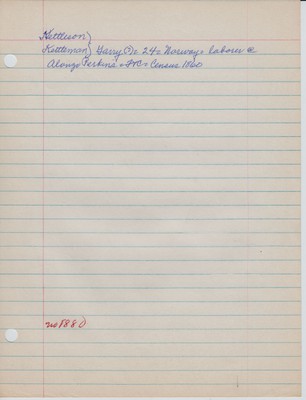 Kettleson }
Kettleman } Harry (?) : 24 : Norway : laborer @
Alonzo Perkins : Census 1860
no 1880